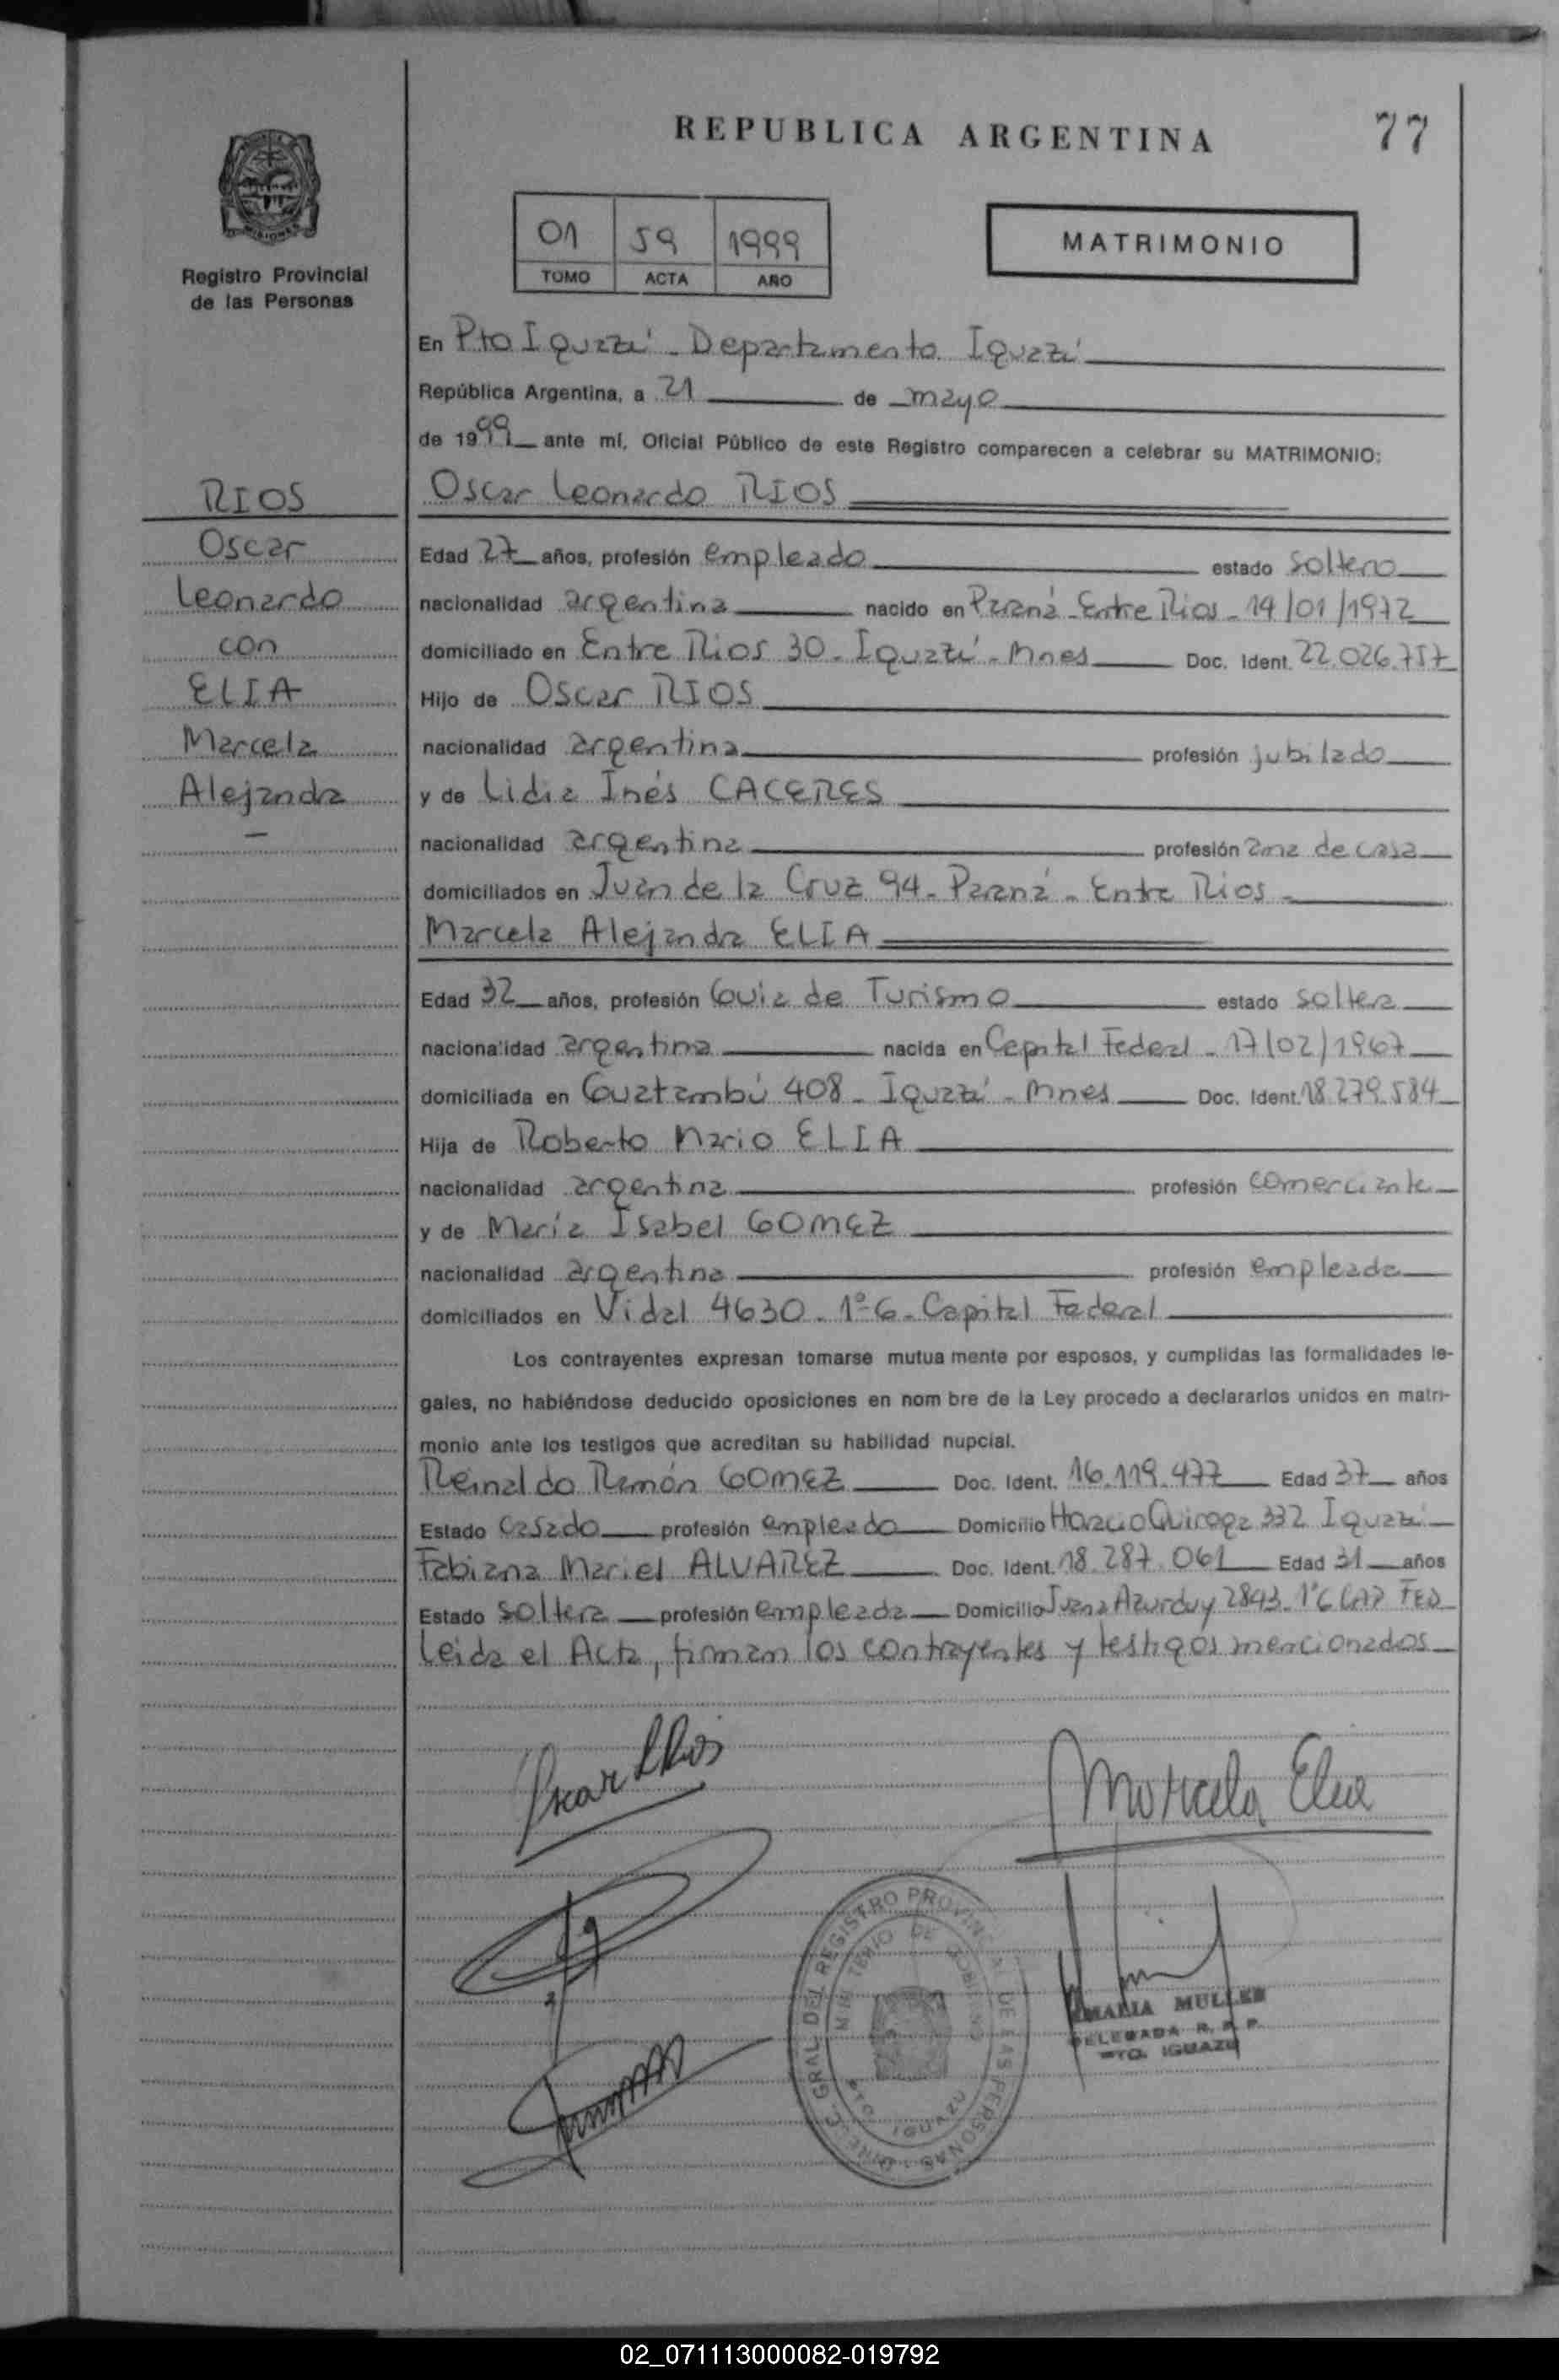 REPUBLICA ARGENTINA
77
Registro Provincial
de las Personas
01 59 1999
TOMO ACTA AÑO
MATRIMONIO
En Pto Iguazú - Departamento Iguazú
República Argentina, a 21 de mayo
de 1999 ante mí, Oficial Público de este Registro comparecen a celebrar su MATRIMONIO:
RIOS
Oscar
Leonardo
con
ELIA
Marcela
Alejandra
-
Oscar Leonardo RIOS
Edad 27 años, profesión empleado estado soltero
nacionalidad argentina nacido en Paraná - Entre Rios - 14/01/1972
domiciliado en Entre Rios 30 - Iguazú - Mnes Doc. Ident. 22.026.757
Hijo de Oscar RIOS
nacionalidad argentina profesión jubilado
y de Lidia Inés CACERES
nacionalidad argentina profesión ama de casa
domiciliados en Juan de la Cruz 94 - Paraná - Entre Rios -
Marcela Alejandra ELIA
Edad 32 años, profesión Guia de Turismo estado soltera
nacionalidad argentina nacida en Capital Federal - 17/02/1967
domiciliada en Guatambú 408 - Iguazú - Mnes Doc. Ident. 18.279.584
Hija de Roberto Mario ELIA
nacionalidad argentina profesión comerciante
y de María Isabel GOMEZ
nacionalidad argentina profesión empleada
domiciliados en Vidal 4630 - 1º G - Capital Federal
Los contrayentes expresan tomarse mutua mente por esposos, y cumplidas las formalidades le-
gales, no habiéndose deducido oposiciones en nom bre de la Ley procedo a declararlos unidos en matri-
monio ante los testigos que acreditan su habilidad nupcial.
Reinaldo Ramón GOMEZ Doc. Ident. 16.119.477 Edad 37 años
Estado casado profesión empleado Domicilio Horacio Quiroga 332 Iguazú
Fabiana Mariel ALVAREZ Doc. Ident. 18.287.061 Edad 31 años
Estado soltera profesión empleada Domicilio Juana Azurduy 2843 - 1º G CAP FED
Leida el Acta, firman los contrayentes y testigos mencionados
Oscar L Rios
Marcela Elia
DIRECC. GRAL. DEL REGISTRO PROVINCIAL DE LAS PERSONAS
MINISTERIO DE GOBIERNO
PTO. IGUAZU
AMALIA MULLER
DELEGADA R. P. P.
PTO. IGUAZU
02_071113000082-019792